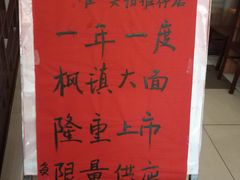 一年一度
枫镇大面
隆重上市
限量供应